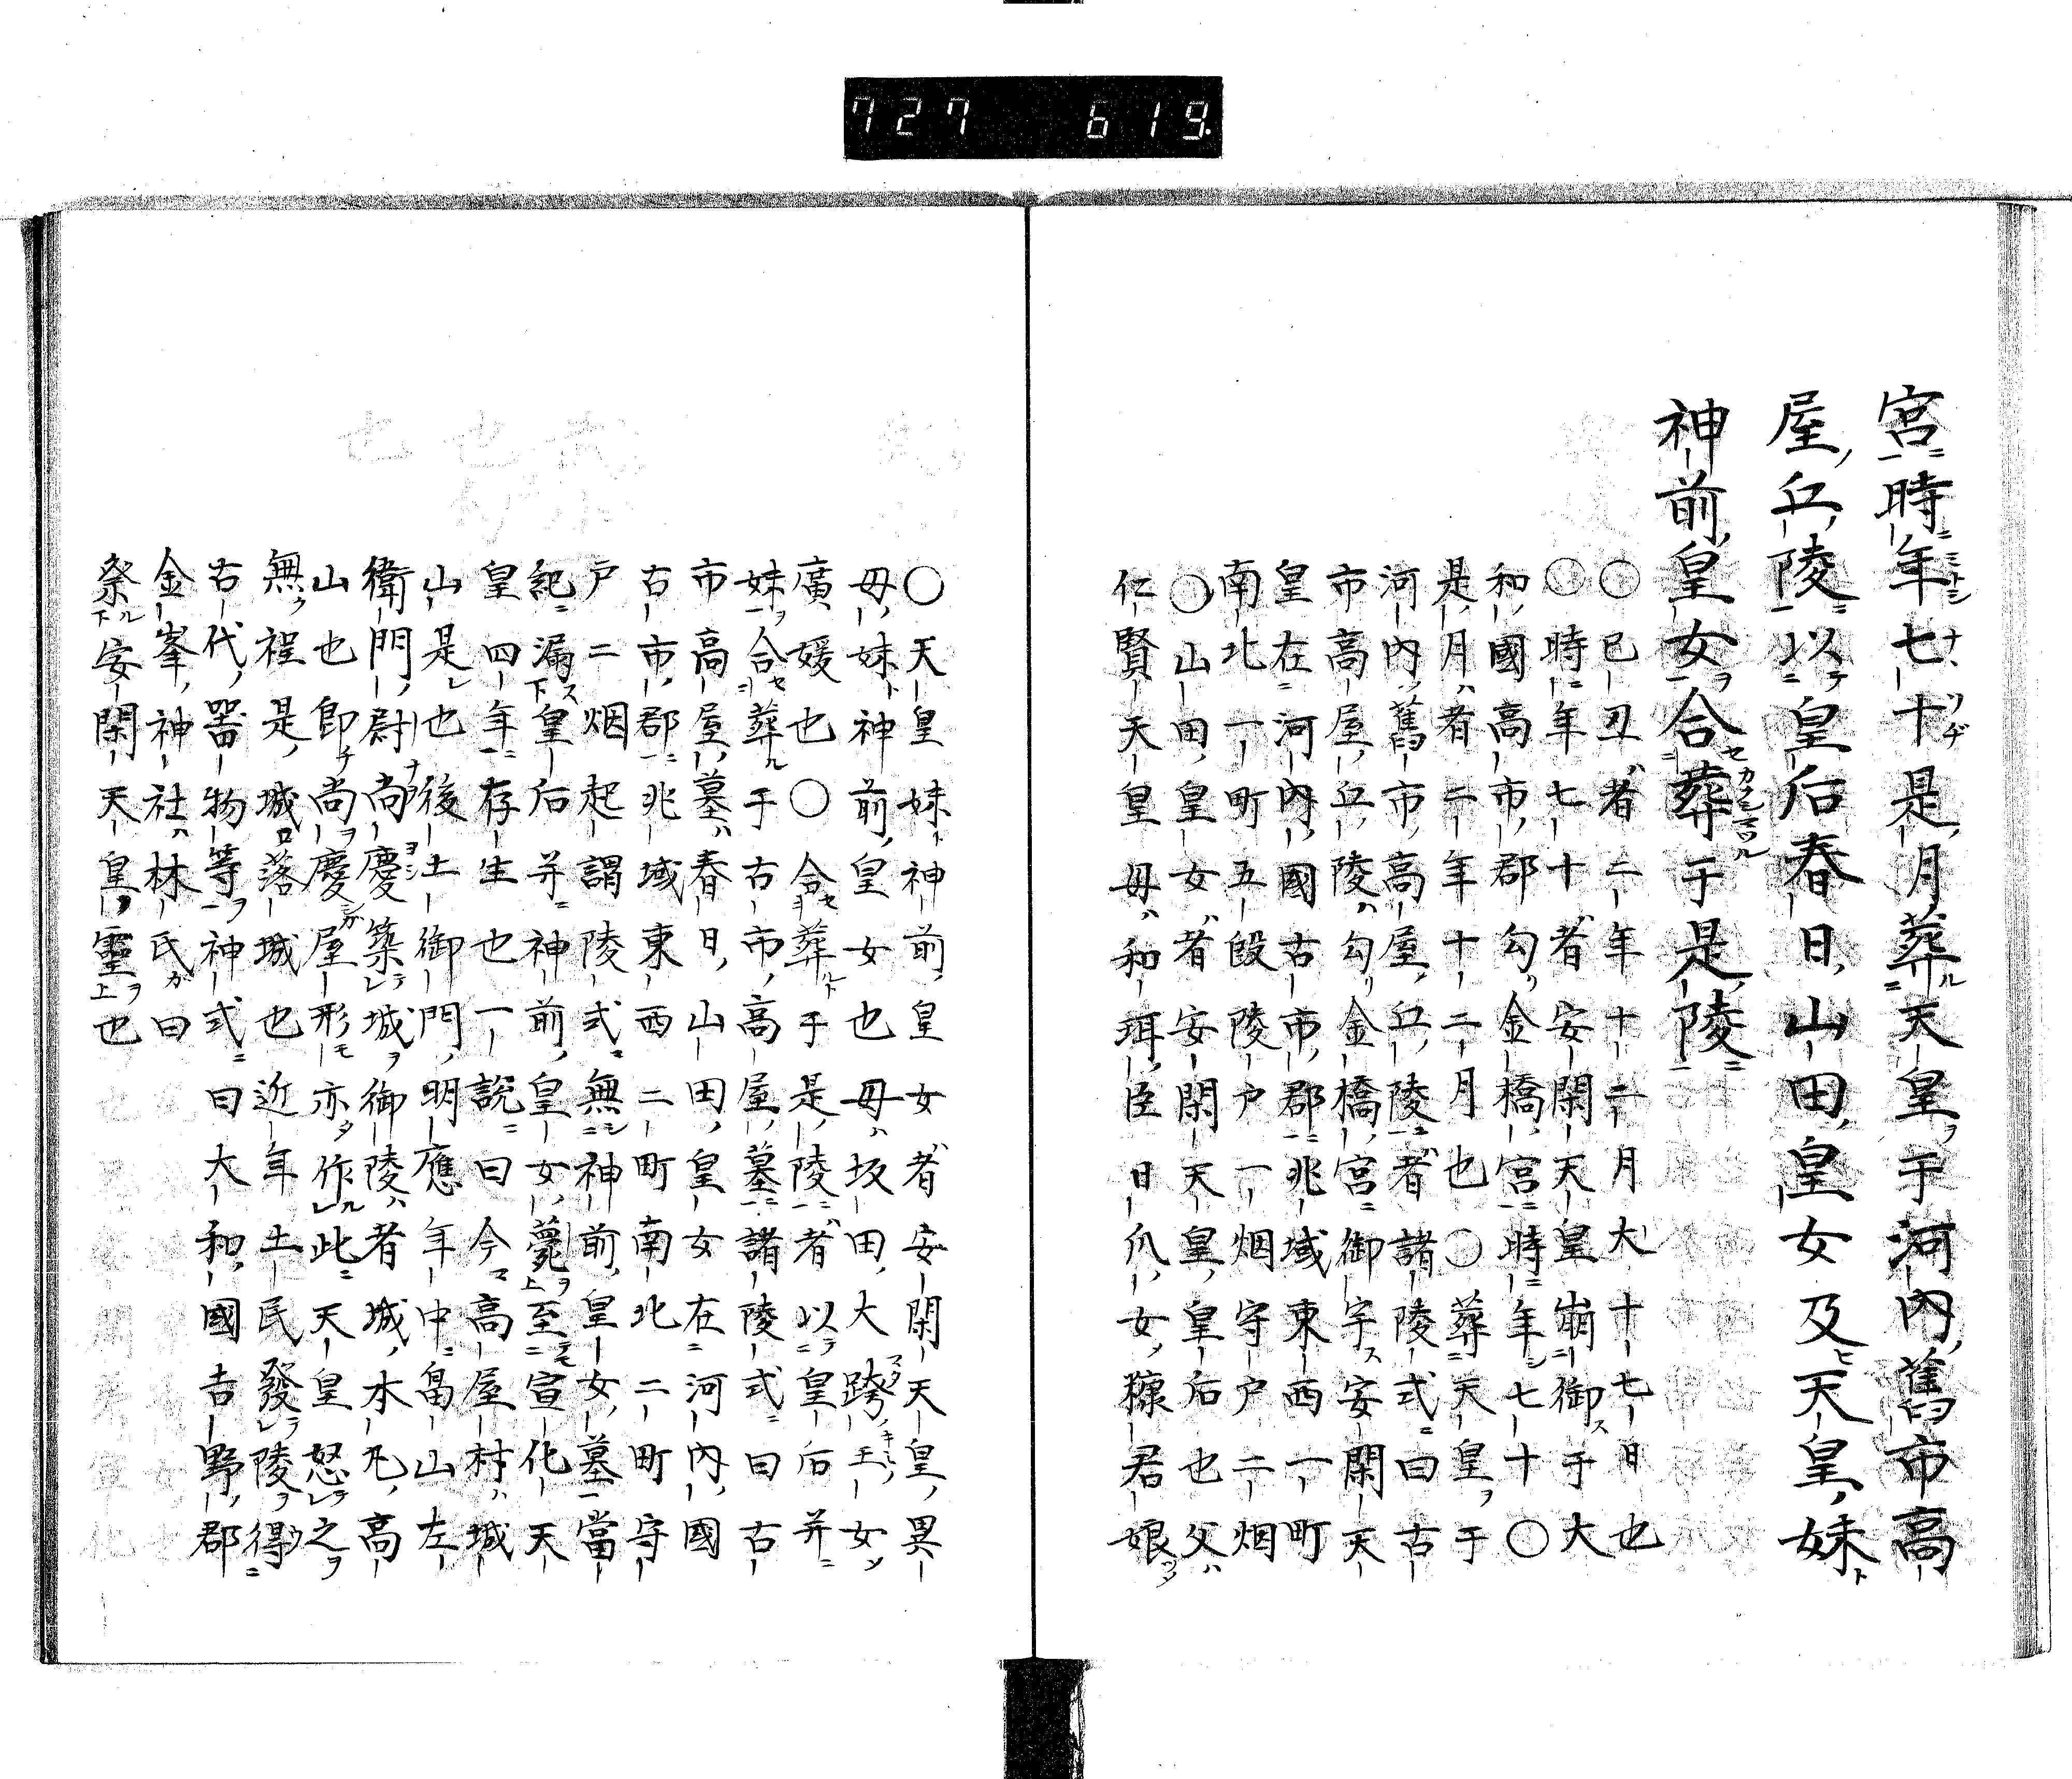 727 619.
宮時年七十是月葬天皇于河內舊市高
屋丘陵以皇后春日山田皇女及天皇妹
神前皇女合葬于是陵
〇巳丑者二年十二月大十七日也
〇時年七十者安閑天皇崩御于大
和國高市郡勾金橋宮時年七十〇
是月者二年十二月也〇葬天皇于
河內舊市高屋丘陵者諸陵式曰古
市高屋丘陵勾金橋宮御宇安閑天
皇在河內國古市郡兆域東西一町
南北一町五段陵戶一烟守戶二烟
〇山田皇女者安閑天皇皇后也父
仁賢天皇母和珥臣日爪女糠君娘
〇天皇妹神前皇女者安閑天皇異
母妹神前皇女也母坂田大跨王女
廣媛也〇合葬于是陵者以皇后并
妹合葬于古市高屋墓諸陵式曰古
市高屋墓春日山田皇女在河內國
古市郡兆域東西二町南北二町守
戶二烟起謂陵式無神前皇女墓當
紀漏皇后并神前皇女薨至宣化天
皇四年存生也一說曰今高屋村城
山是也後土御門明應年中畠山左
衛門尉尚慶築城御陵者城本凡高
山也即尚慶屋形亦作此天皇怒之
無程是城落城也近年土民發陵得
古代器物等神式曰大和國吉野郡
金峯神社林氏曰
祭安閑天皇靈也